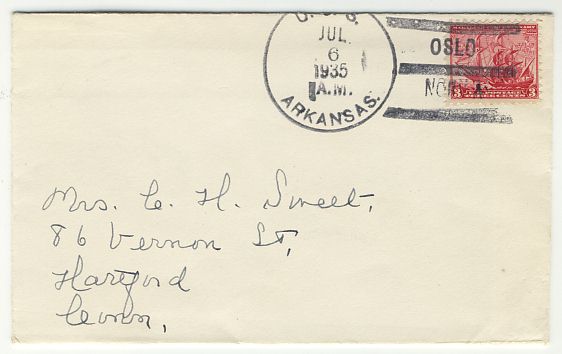 U. S. S.
JUL.
6
1935
A.M.
ARKANSAS.
OSLO
3 3
Mrs. C. H. Sweet,
86 Vernon St,
Hartford
Conn,